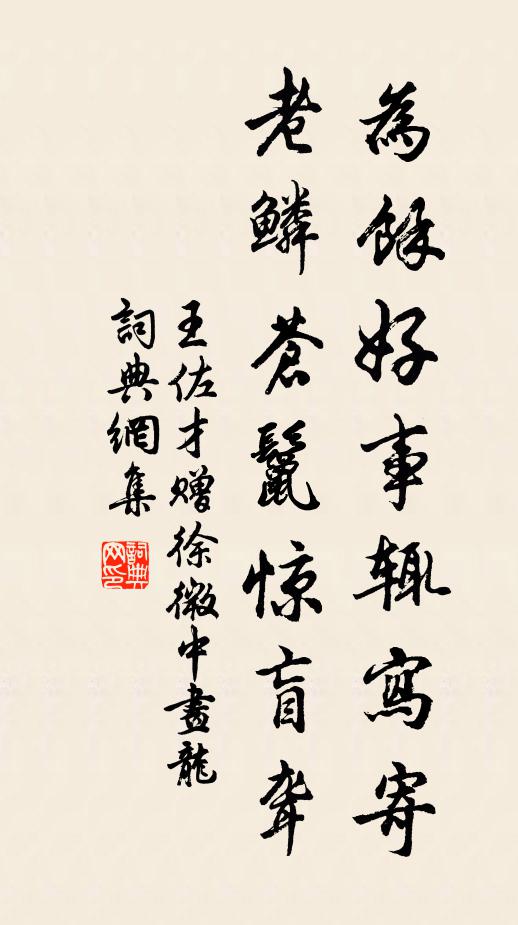 為餘好事辄寫寄
老鱗蒼鬣惊盲聋
王佐才赠徐微中畫龍
詞典網集
詞典网印